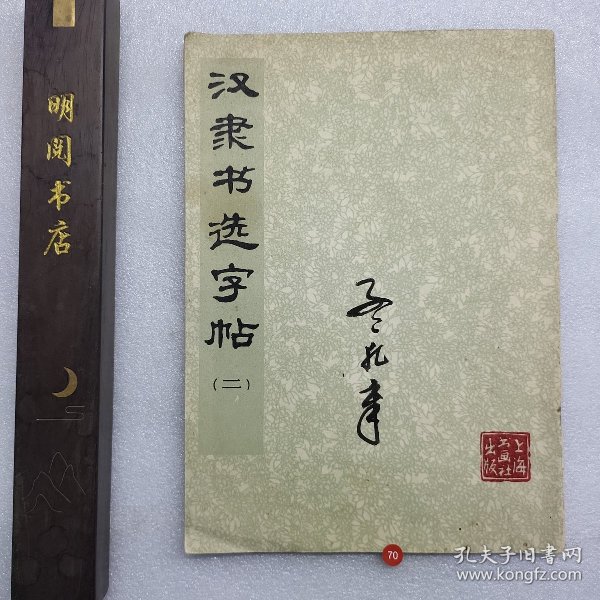 明阅书店
汉隶书选字帖
（二）
上海
书画社
出版
70
孔夫子旧书网
www.kongfz.com